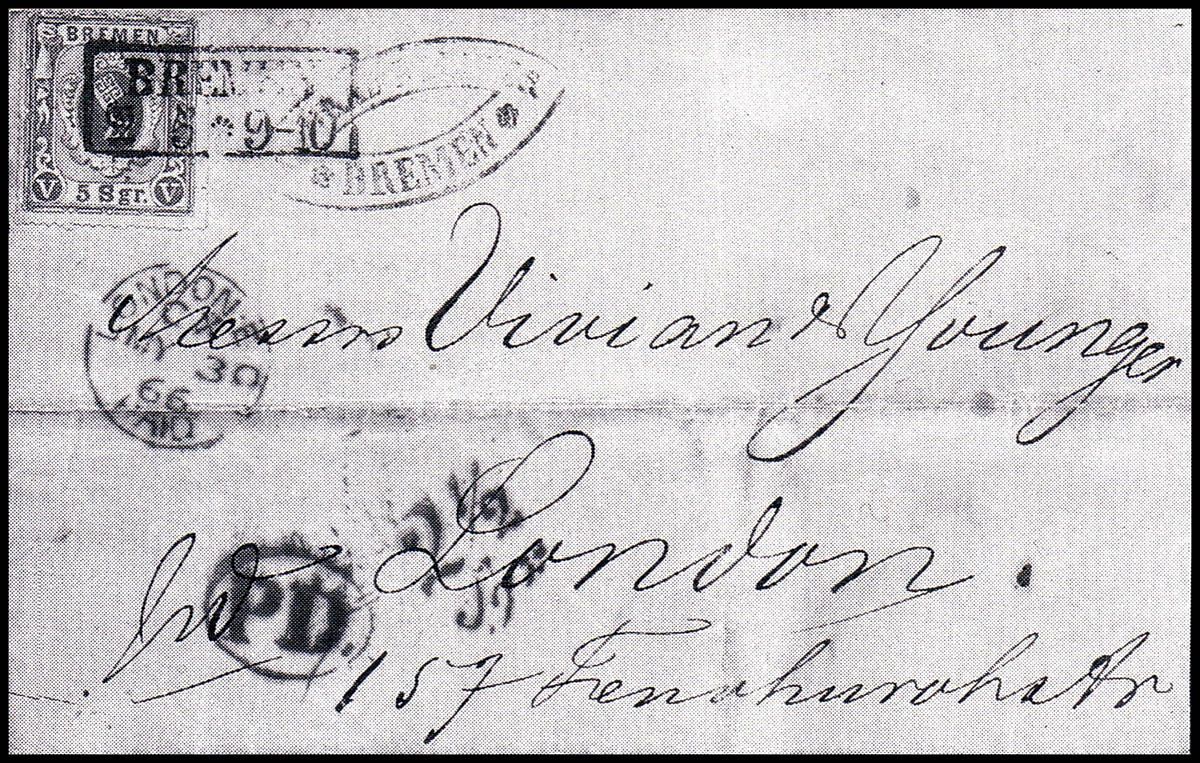 BREMEN
V 5 Sgr. V
BREMEN
5 * 9-10
BREMEN
LONDON
30
66
PAID
Messrs Vivian & Younger
London.
PD
157 Fenchurchstr